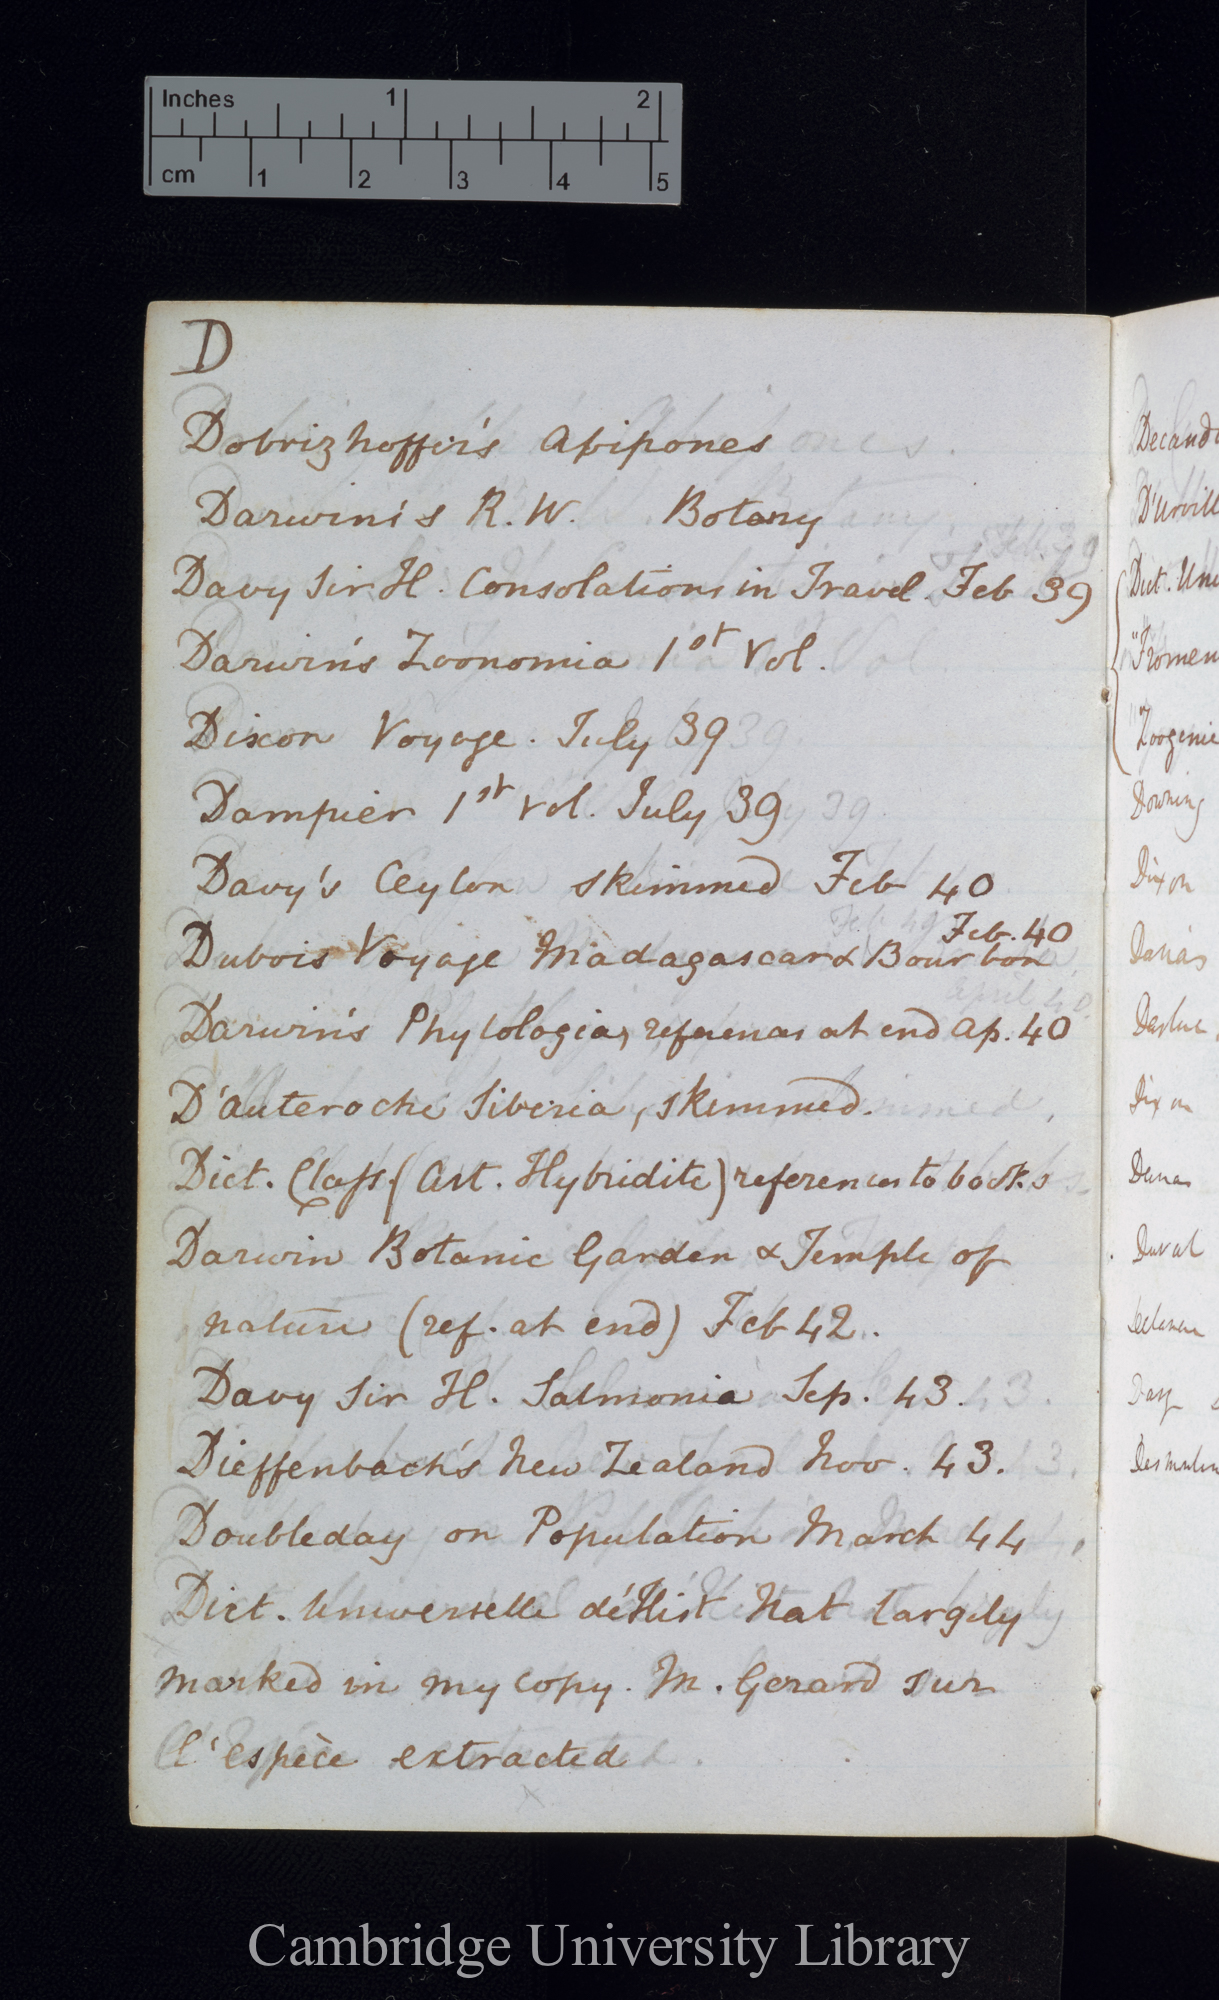 Inches 1 2
cm 1 2 3 4 5
D
Dobrizhoffer's Abipones
Darwin's R. W. Botany
Davy Sir H. Consolations in Travel. Feb 39
Darwin's Zoonomia 1st Vol.
Dixon Voyage. July 39
Dampier 1st vol. July 39
Davy's Ceylon skimmed Feb 40
Feb. 40
Dubois Voyage Madagascar & Bourbon
Darwin's Phytologia, references at end Ap. 40
D'auteroche Siberia, skimmed.
Dict. Class (Art. Hybridite) references to books
Darwin Botanic Garden & Temple of
nature (ref. at end) Feb 42.
Davy Sir H. Salmonia Sep. 43.
Dieffenbach's New Zealand Nov. 43.
Doubleday on Population March 44
Dict. Universelle de'Hist Nat largely
marked in my copy. M. Gerard sur
l'Espèce extracted
Decand
D'Urvill
Dict. Uni
"Fromen
"Zoogenie
Downing
Dixon
Dixon
Duval
Day
Desmulin
Cambridge University Library